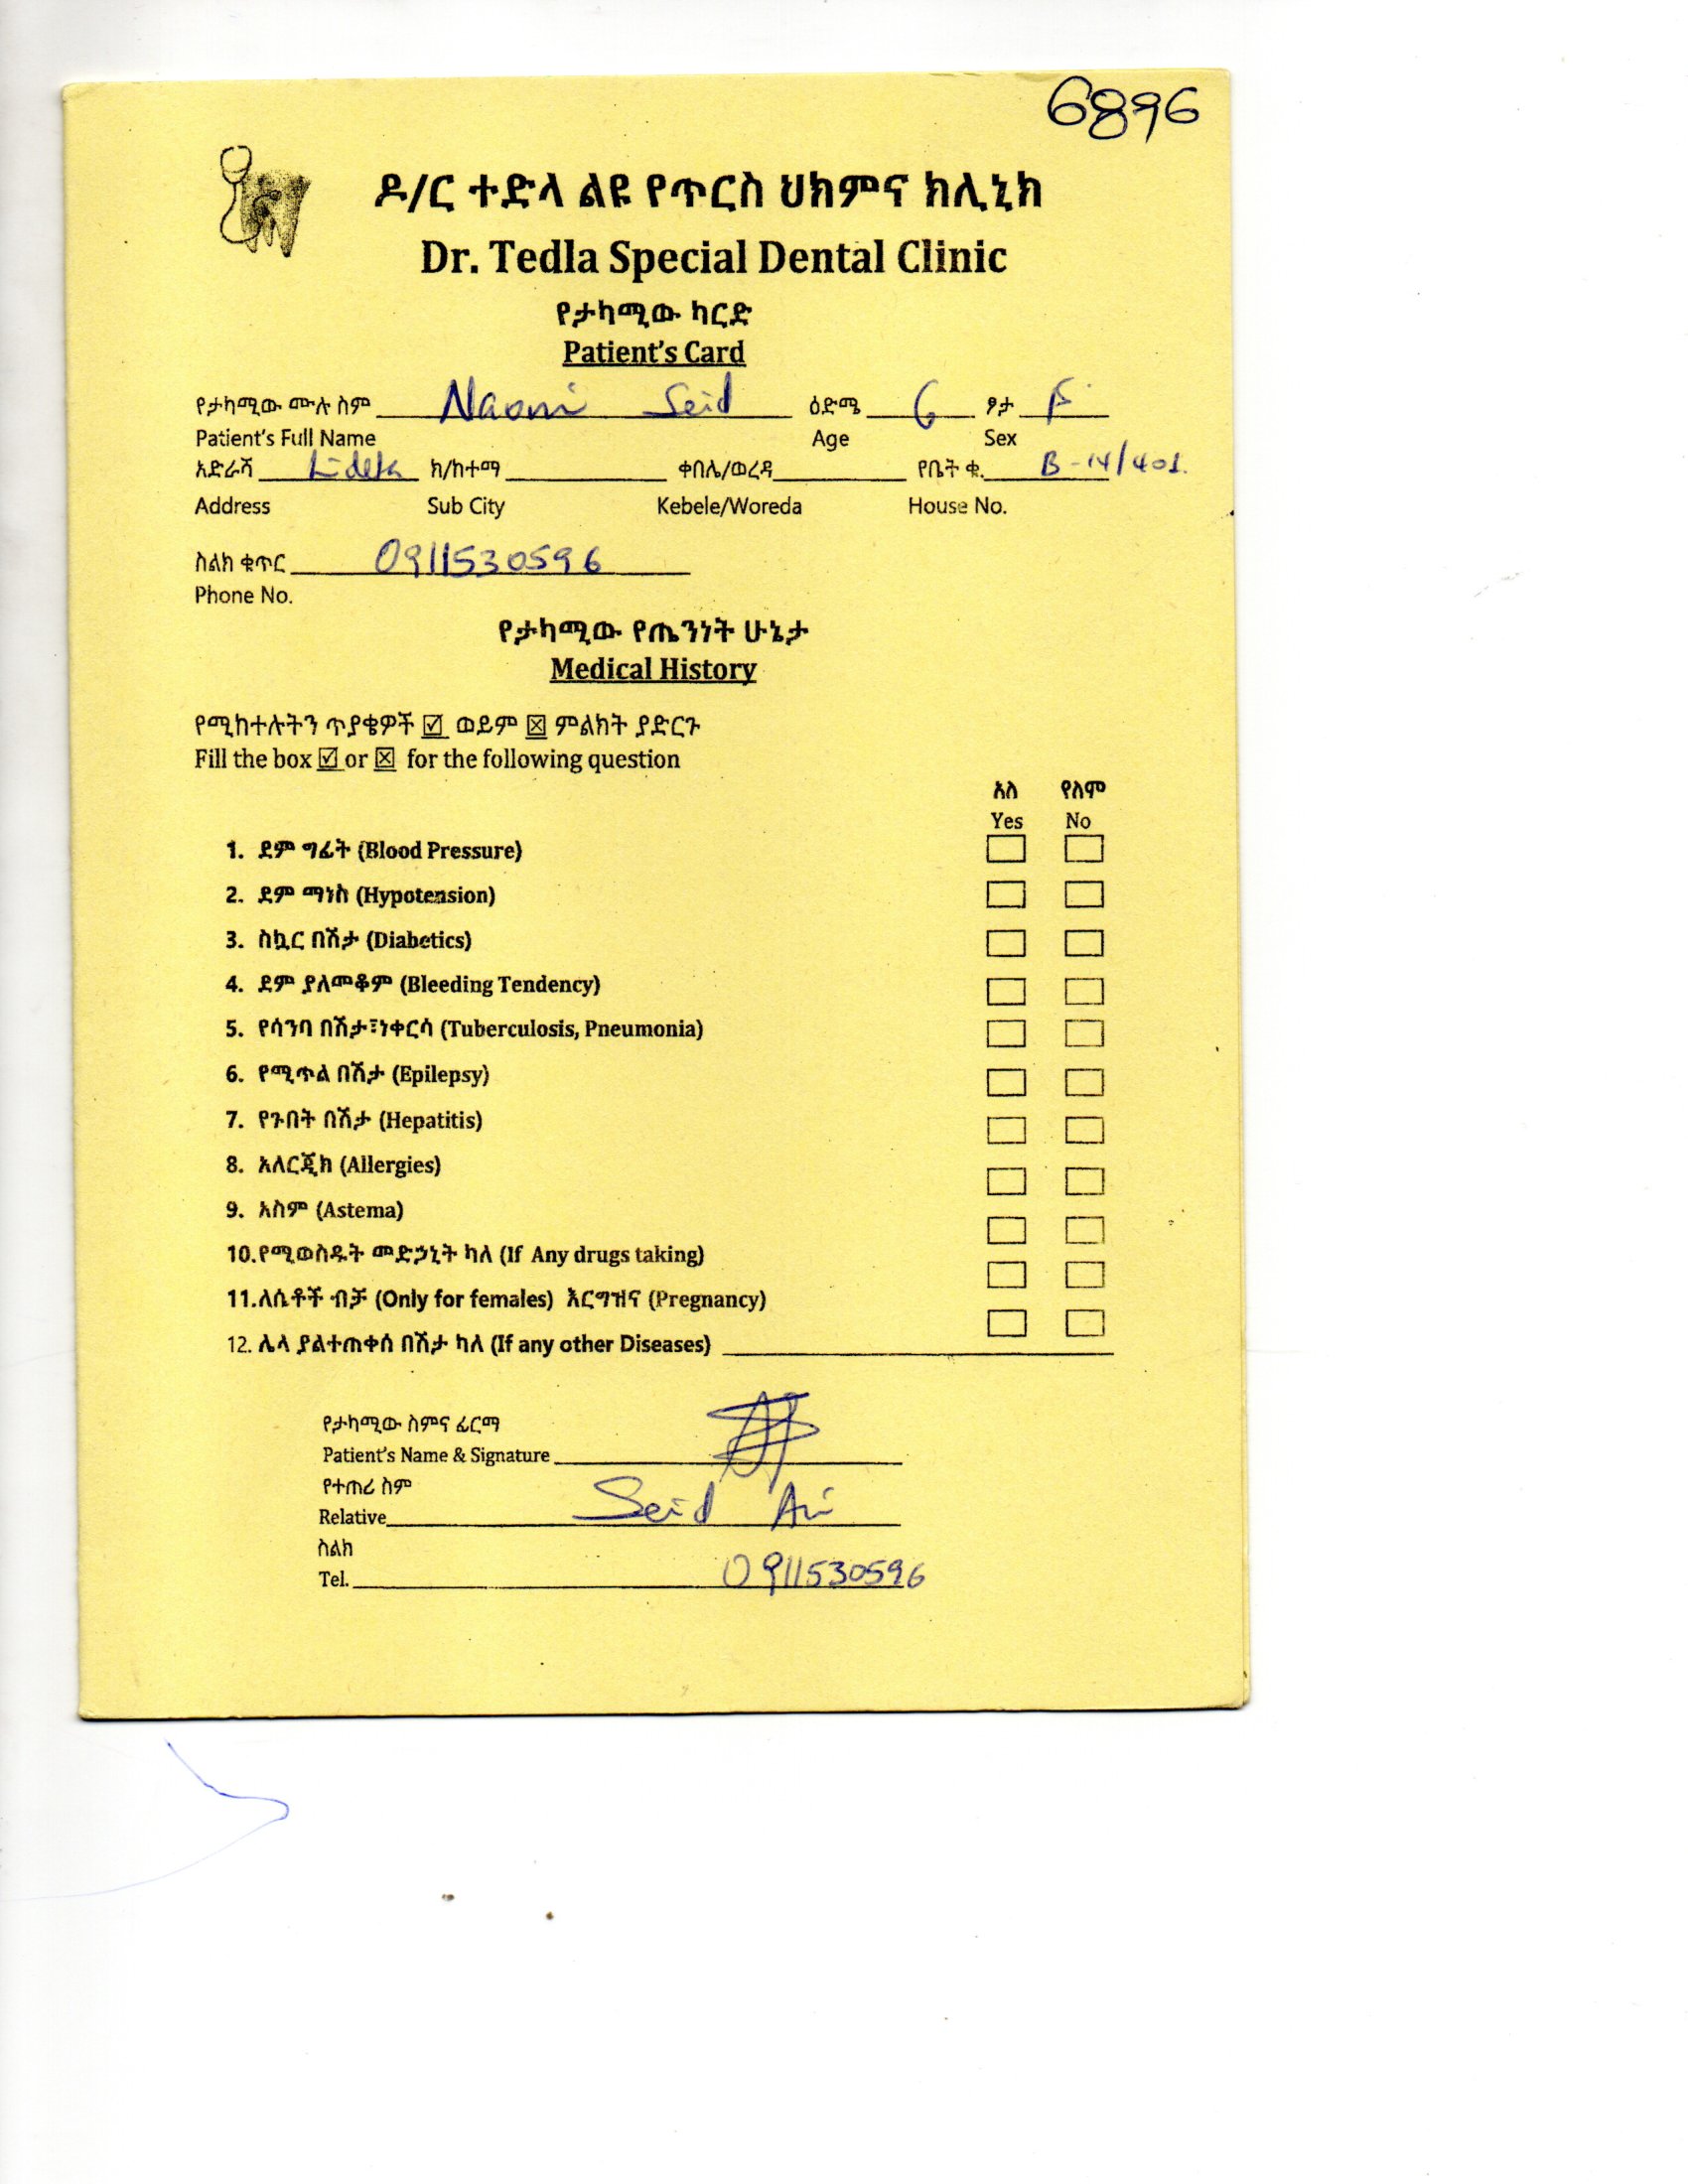 6896
ዶ/ር ተድላ ልዩ የጥርስ ህክምና ክሊኒክ
Dr. Tedla Special Dental Clinic
የታካሚው ካርድ
Patient's Card
የታካሚው ሙሉ ስም Naomi Seid ዕድሜ 6 ፆታ F
Patient's Full Name Age Sex
አድራሻ Lideta ክ/ከተማ ቀበሌ/ወረዳ የቤት ቁ. B-14/401.
Address Sub City Kebele/Woreda House No.
ስልክ ቁጥር 0911530596
Phone No.
የታካሚው የጤንነት ሁኔታ
Medical History
የሚከተሉትን ጥያቄዎች ☑ ወይም ☒ ምልክት ያድርጉ
Fill the box ☑ or ☒ for the following question
አለ የለም
Yes No
1. ደም ግፊት (Blood Pressure)
2. ደም ማነስ (Hypotension)
3. ስኳር በሽታ (Diabetics)
4. ደም ያለመቆም (Bleeding Tendency)
5. የሳንባ በሽታ፣ነቀርሳ (Tuberculosis, Pneumonia)
6. የሚጥል በሽታ (Epilepsy)
7. የጉበት በሽታ (Hepatitis)
8. አለርጂክ (Allergies)
9. አስም (Astema)
10.የሚወስዱት መድኃኒት ካለ (If Any drugs taking)
11.ለሴቶች ብቻ (Only for females) እርግዝና (Pregnancy)
12. ሌላ ያልተጠቀሰ በሽታ ካለ (If any other Diseases)
የታካሚው ስምና ፊርማ
Patient's Name & Signature
የተጠሪ ስም
Relative Seid
ስልክ
Tel. 0911530596